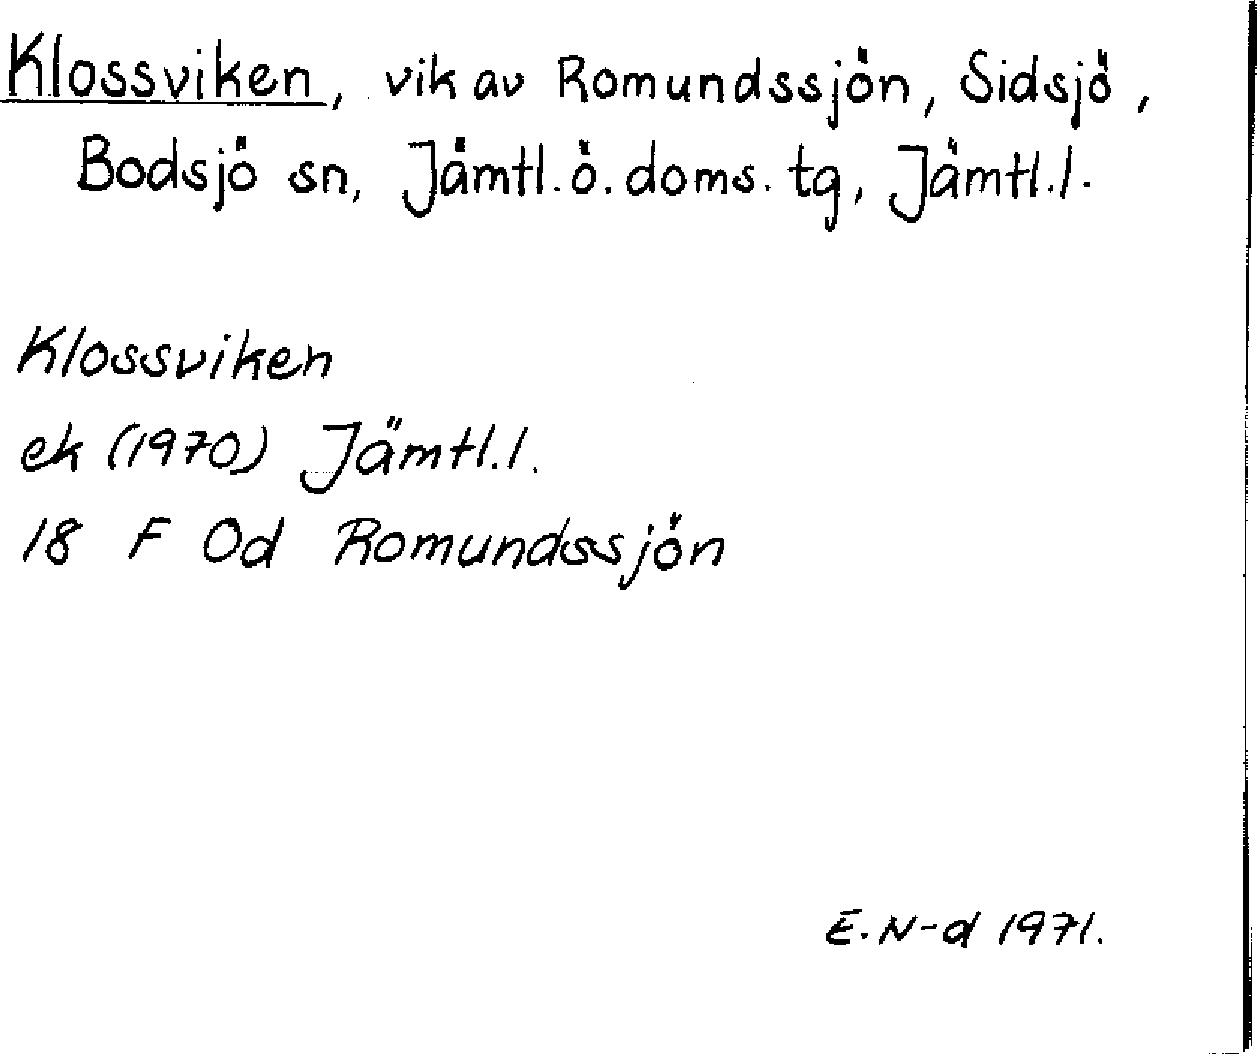 Klossviken, vik av Romundssjön, Sidsjö,
Bodsjö sn, Jämtl. ö. doms. tg, Jämtl. l.
Klossviken
ek (1970) Jämtl. l.
18 F Od Romundssjön
E. N-d 1971.